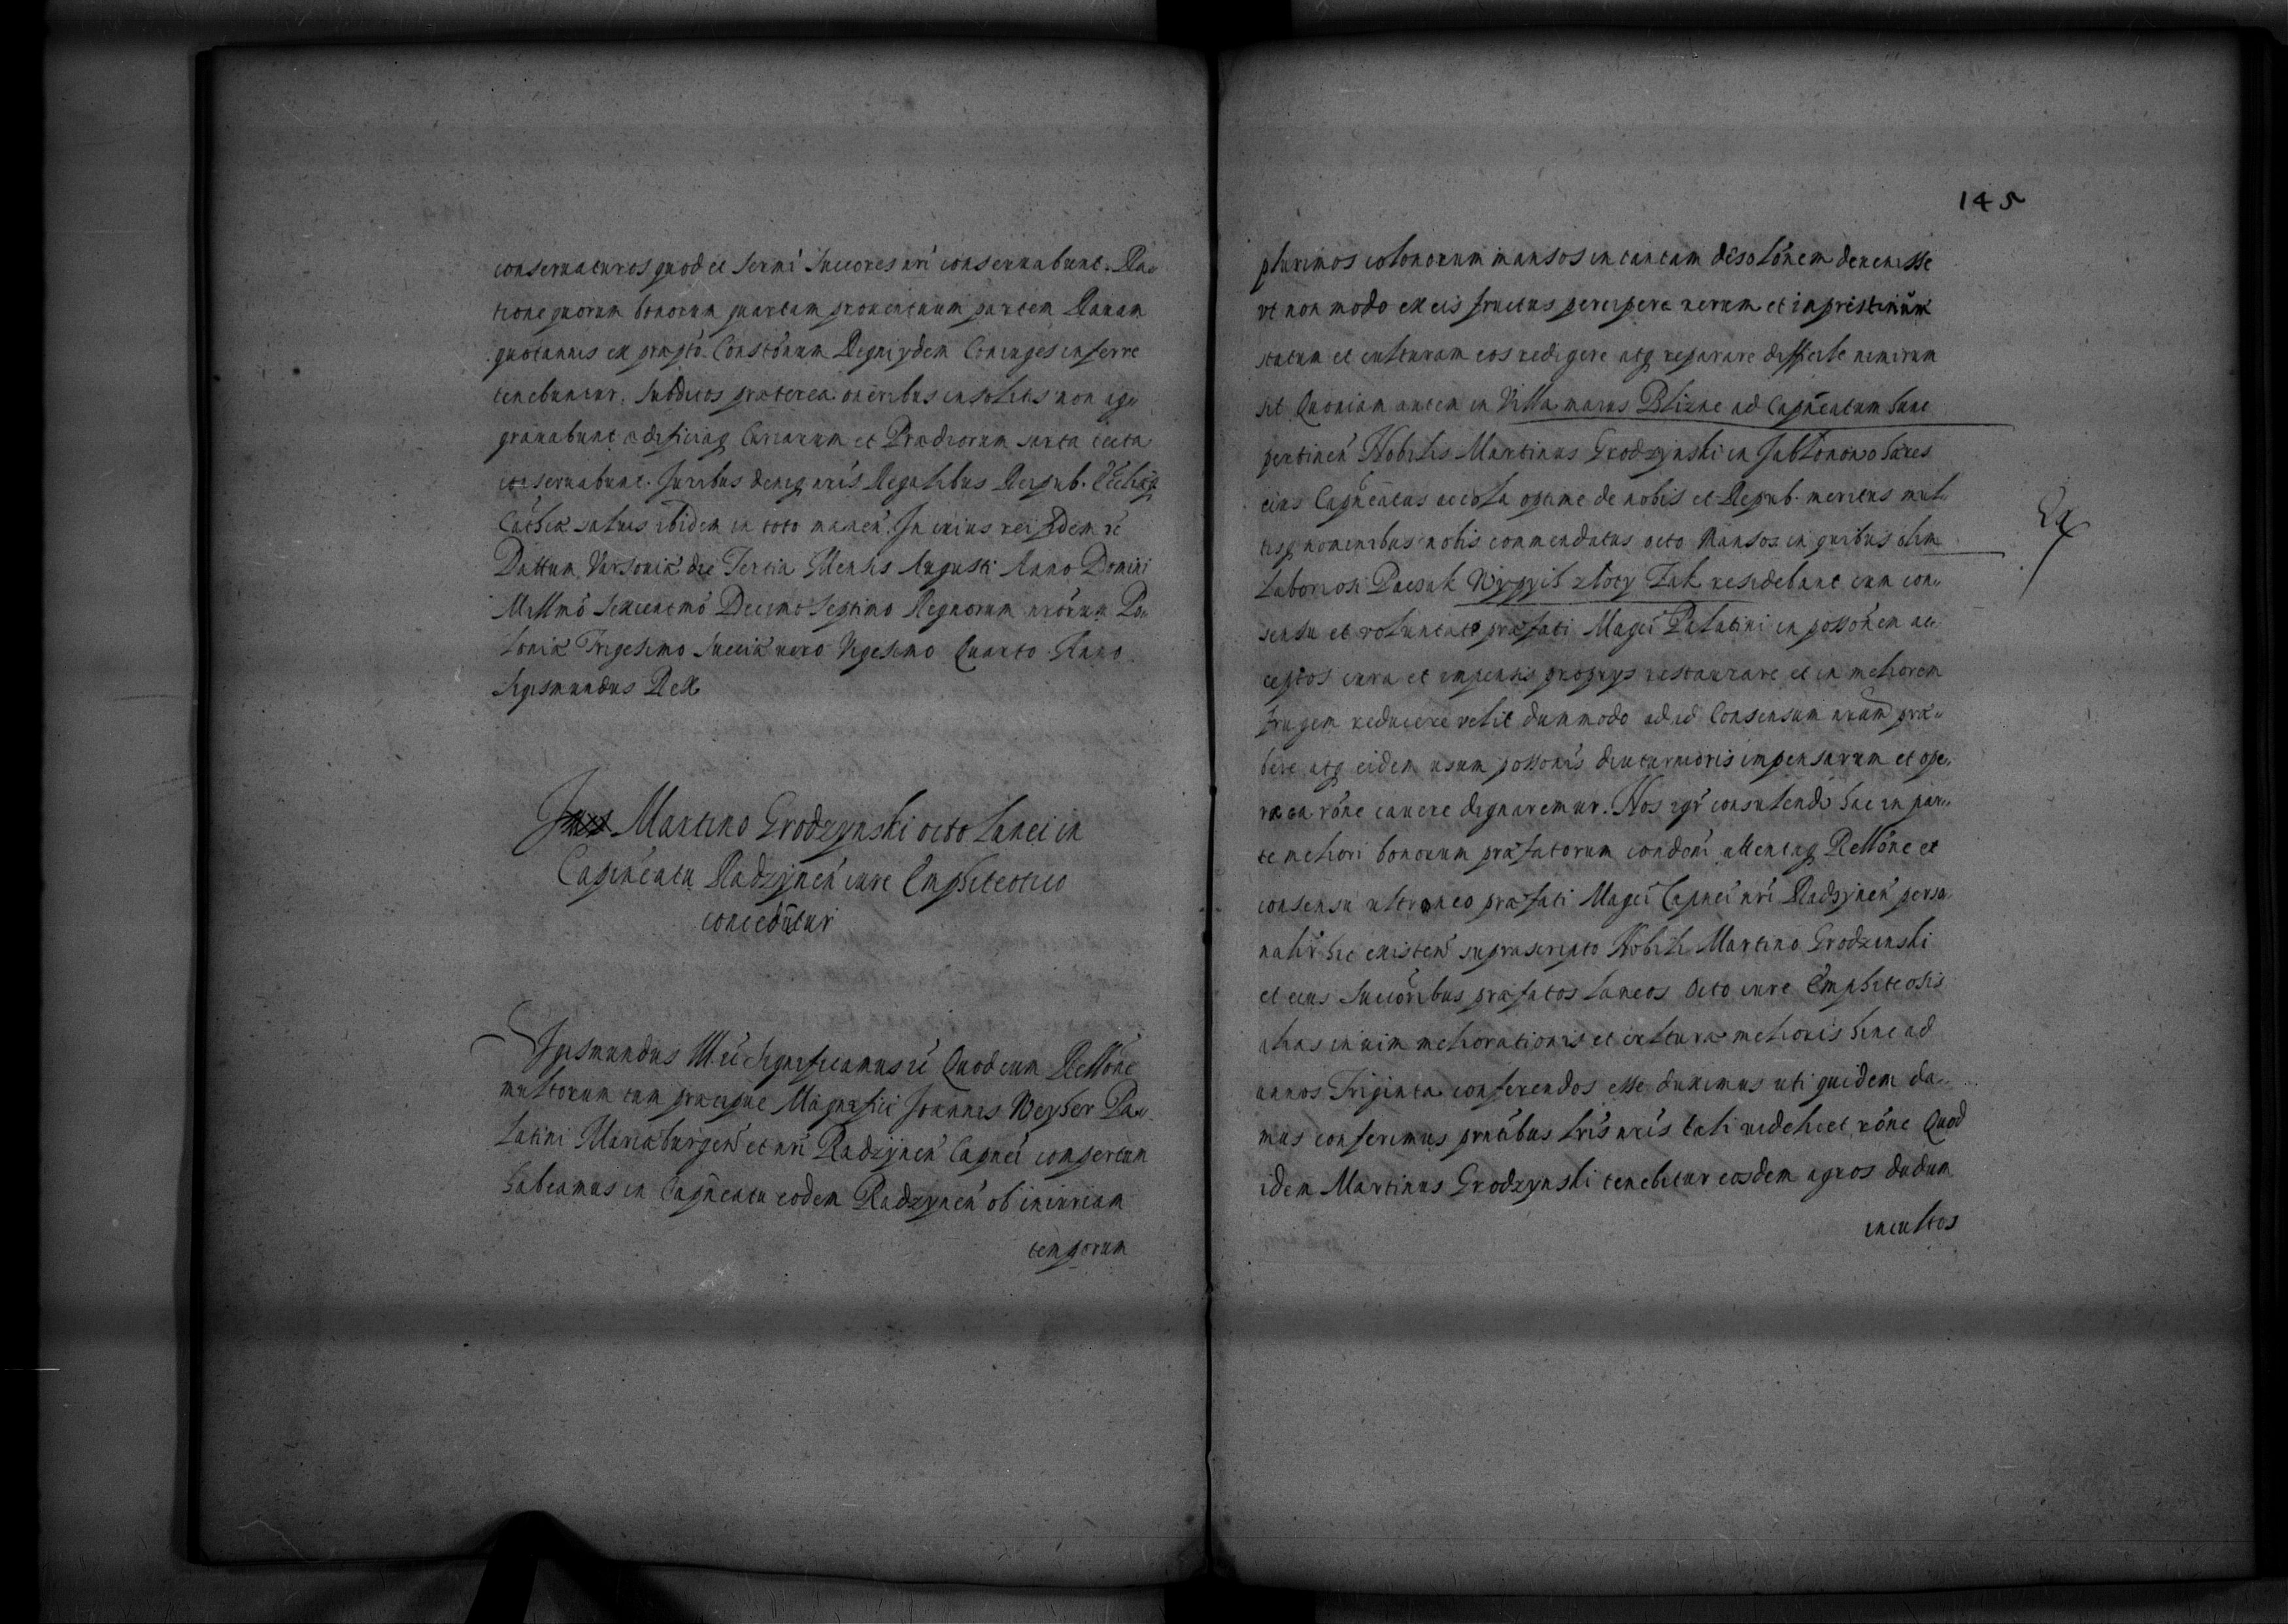 conservaturos quod et Sermi Succores nri conservabunt. Ra„
tione quorum bonorum quartam proventuum partem Ravam
quotannis ex præpto Constōnum Regni ydem Coniuges inferre
tenebuntur. Subditos præterea oneribus insolitis non ag„
gravabunt ædificiaq Curiarum et Prædiorum sarta tecta
conservabunt. Juribus deniq nris Regalibus Reipub. Eccliæq
Cathcæ salvis ibidem in toto manen. In cuius rei fidem &c
Dattum Varsoviæ die Tertia Mensis Augusti Anno Domini
Millmo Sexcentmo Decimo Septimo Regnorum nrorum Po„
loniæ Trigesimo Sueciæ vero Vigesimo Quarto Anno
Sigismundus Rex
Martino Grodzynski octo Lanei in
Capneatu Radzynen iure Emphiteotico
conceduntur
Sigismundus III &c Significamus &c Quod cum Rellone
multorum tum præcipue Magnifici Joannis Weyher Pa„
latini Mariæburgen et nri Radzynen Capnei compertum
habeamus in Capneatu eodem Radzynen ob iniuriam
temporum
145
plurimos colonorum mansos in tantam desolonem devenisse
vt non modo ex eis fructus percipere verum et in pristinum
statum et culturam eos redigere atq reparare difficile nimirum
sit Quoniam autem in Villa maius Blizne ad Capneatum hunc
pertinen Nobilis Martinus Grodzynski in Jablonowo hæres
eius Capneatus accola optime de nobis et Repub. meritus mul„
tisq nominibus nobis commendatus octo Mansos in quibus olim
Laboriosi Pacsak Wypyil zloty Zak residebant cum con„
sensu et voluntate præfati Magci Palatini in possonem ac„
ceptos cura et impensis proprys restaurare et in meliorem
frugem reducere velit dummodo ad id Consensum nrum præ„
bere atq eidem usum possonis diuturnioris impensarum et ope„
ræ ea rone cavere dignaremur. Nos igr consulendo hac in par„
te meliori bonorum præfatorum condoni attentaq Rellone et
consensu ultroneo præfati Magci Capnei nri Radzynen perso„
nalir hic existen suprascripto Nobili Martino Grodzinski
et eius Succoribus præfatos Laneos Octo iure Emphiteosis
alias in vim meliorationis et culturæ melioris hinc ad
annos Triginta conferendos esse duximus uti quidem da„
mus conferimus prntibus lris nris tali videlicet rone Quod
idem Martinus Grodzynski tenebitur eosdem agros dudum
incultos